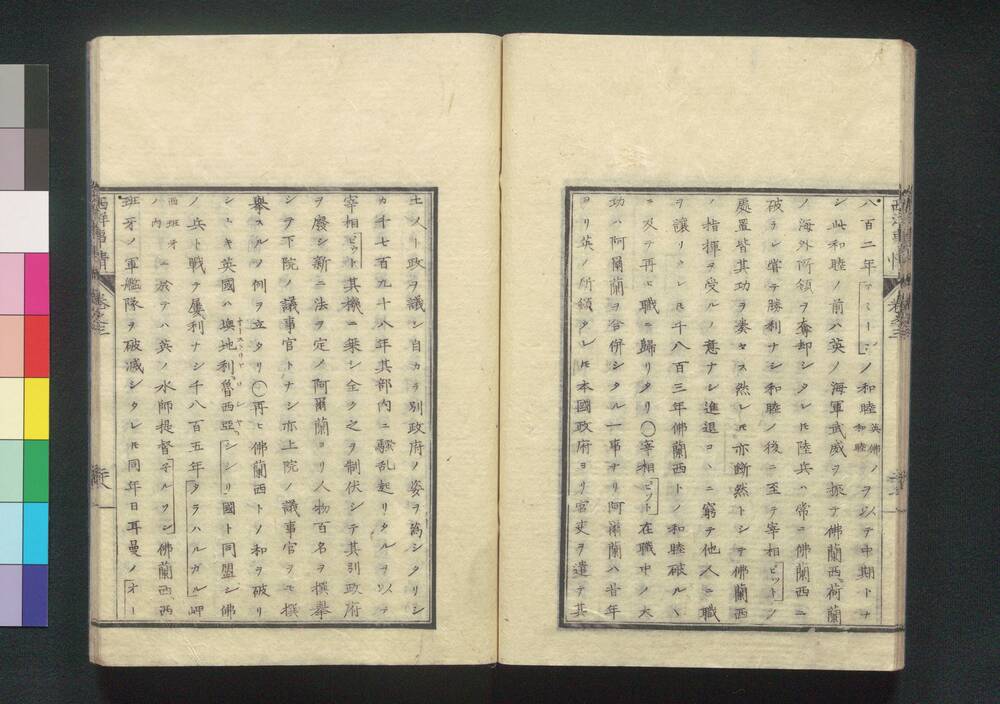 八百二年アミーンノ和睦英佛ノ和睦ヲ以テ中期トナ
シ此和睦ノ前ハ英ノ海軍武威ヲ振テ佛蘭西荷蘭
ノ海外所領ヲ奪却シタレ𪜈陸兵ハ常ニ佛蘭西ニ
破ラレ嘗テ勝利ナシ和睦ノ後ニ至テ宰相ピットノ
處置皆其功ヲ奏セス然レ𪜈亦断然トシテ佛蘭西
ノ指揮ヲ受ルノ意ナシ進退コヽニ窮テ他人ニ職
ヲ讓リタレ𪜈千八百三年佛蘭西トノ和睦破ルヽ
ニ及テ再ヒ職ニ歸リタリ○宰相ピット在職中ノ大
功ハ阿爾蘭ヲ合併シタル一事ナリ阿爾蘭ハ昔年
ヨリ英ノ所領タレ𪜈本國政府ヨリ官吏ヲ遣テ其
土ノ人ト政ヲ議シ自カラ別政府ノ姿ヲ為シタリシ
カ千七百九十八年其部内ニ騒乱起リタルヲ以テ
宰相ピット其機ニ乗シ全ク之ヲ制伏シテ其別政府
ヲ廢シ新ニ法ヲ定メ阿爾蘭ヨリ人物百名ヲ撰擧
シテ下院ノ議事官トナシ亦上院ノ議事官ヲモ撰
擧スルノ例ヲ立タリ○再ヒ佛蘭西トノ和ヲ破リ
シトキ英國ハ墺地利オーストリヤ魯西亞シシリ國ト同盟シ佛
ノ兵ト戰テ屢利ナシ千八百五年タラハルガル岬
西班牙ノ内ニ於テハ英ノ水師提督子ルソン佛蘭西西
班牙ノ軍艦隊ヲ破滅シタレ𪜈同年日耳曼ノオー
西洋事情
卷之三